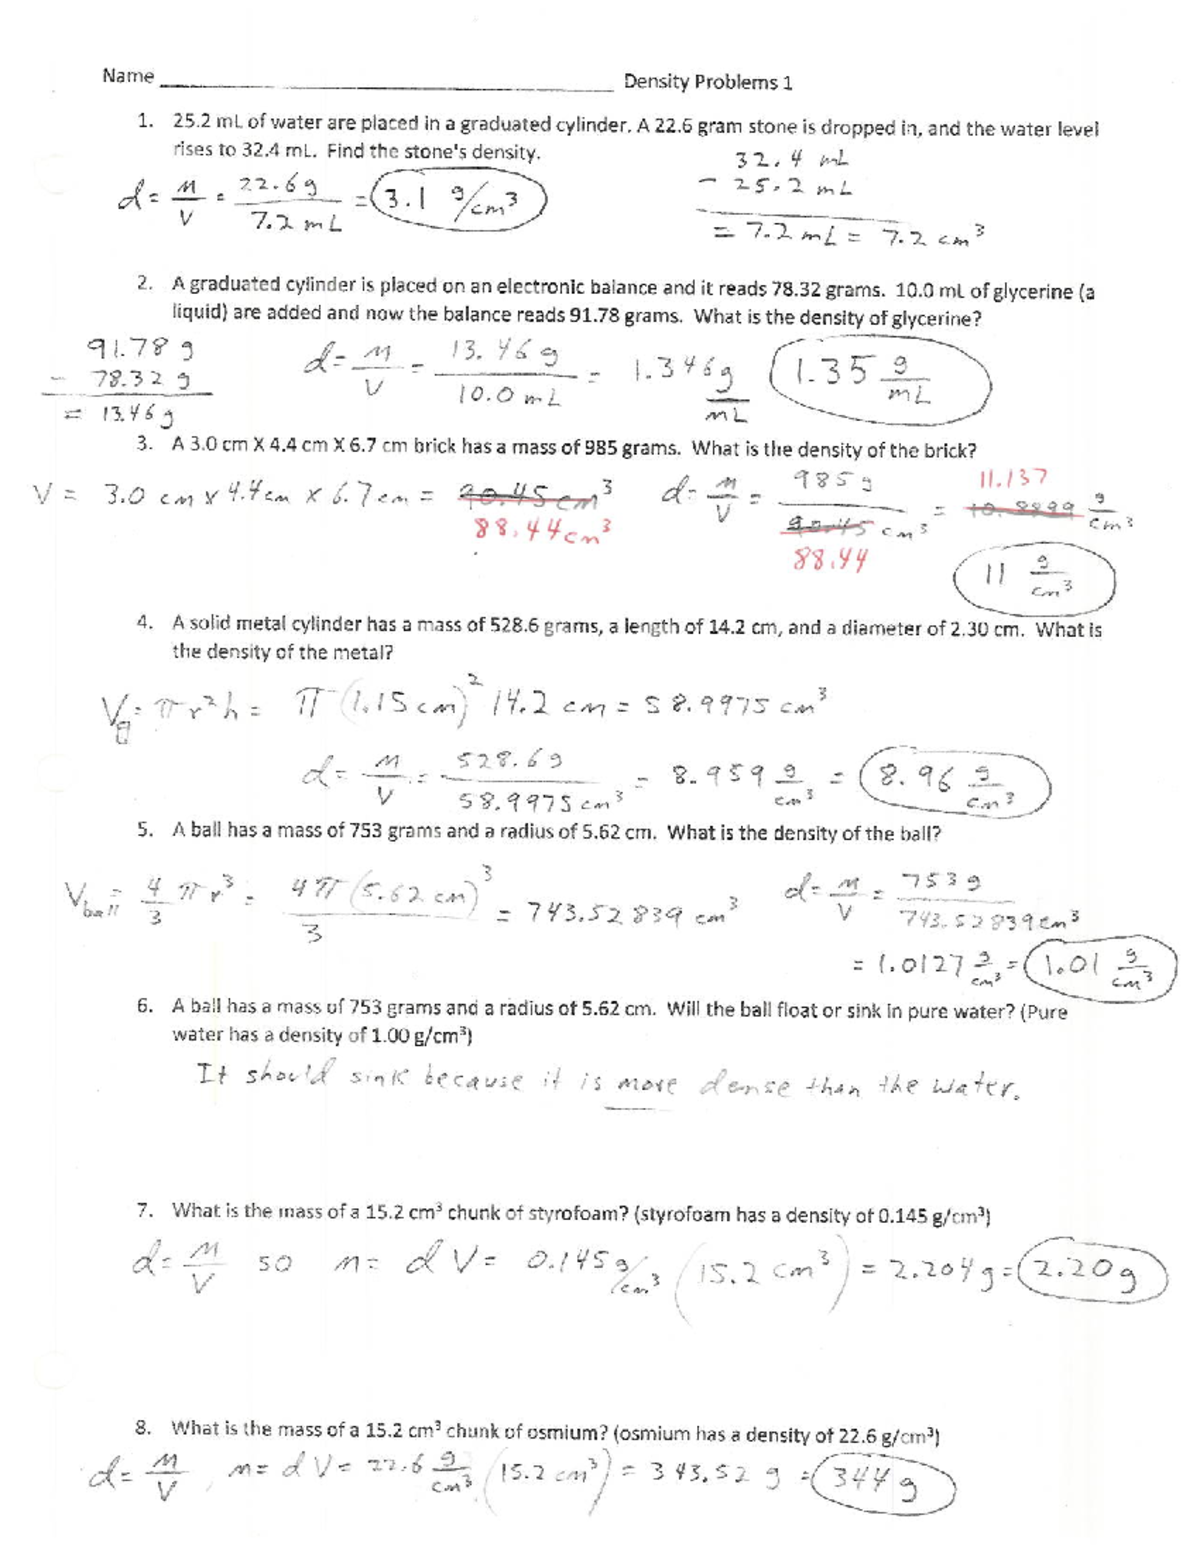 Name Density Problems 1
1. 25.2 mL of water are placed in a graduated cylinder. A 22.6 gram stone is dropped in, and the water level
rises to 32.4 mL. Find the stone's density.
32.4 mL
- 25.2 mL
= 7.2 mL = 7.2 cm³
d = M/V = 22.6g/7.2 mL = 3.1 g/cm³
2. A graduated cylinder is placed on an electronic balance and it reads 78.32 grams. 10.0 mL of glycerine (a
liquid) are added and now the balance reads 91.78 grams. What is the density of glycerine?
91.78 g
- 78.32 g
= 13.46 g
d = M/V = 13.46 g/10.0 mL = 1.346 g/mL 1.35 g/mL
3. A 3.0 cm X 4.4 cm X 6.7 cm brick has a mass of 985 grams. What is the density of the brick?
V = 3.0 cm x 4.4 cm x 6.7 cm = 90.45 cm³
88.44 cm³
d = M/V = 985 g/90.45 cm³ = 10.8899 g/cm³
88.44
11.137
11 g/cm³
4. A solid metal cylinder has a mass of 528.6 grams, a length of 14.2 cm, and a diameter of 2.30 cm. What is
the density of the metal?
V = πr²h = π(1.15 cm)² 14.2 cm = 58.9975 cm³
d = M/V = 528.6g/58.9975 cm³ = 8.959 g/cm³ = 8.96 g/cm³
5. A ball has a mass of 753 grams and a radius of 5.62 cm. What is the density of the ball?
V ball = 4/3 πr³ = 4π(5.62 cm)³/3 = 743.52839 cm³
d = M/V = 753 g/743.52839 cm³
= 1.0127 g/cm³ = 1.01 g/cm³
6. A ball has a mass of 753 grams and a radius of 5.62 cm. Will the ball float or sink in pure water? (Pure
water has a density of 1.00 g/cm³)
It should sink because it is more dense than the water.
7. What is the mass of a 15.2 cm³ chunk of styrofoam? (styrofoam has a density of 0.145 g/cm³)
d = M/V so m = dV = 0.145 g/cm³ (15.2 cm³) = 2.204 g = 2.20 g
8. What is the mass of a 15.2 cm³ chunk of osmium? (osmium has a density of 22.6 g/cm³)
d = M/V, m = dV = 22.6 g/cm³ (15.2 cm³) = 343.52 g = 344 g